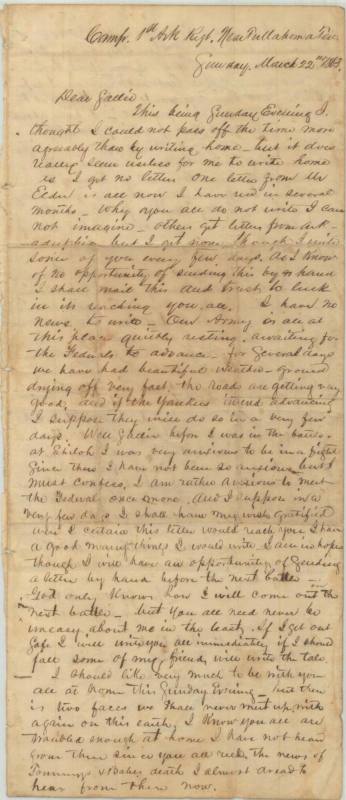 Camp. 1st Ark Regt. Near Tullahoma Ten
Sunday, March 22nd 1863.
Dear Sallie
This being Sunday Evening I
thought I could not pass off the time more
agreably than by writing home - but it does
really seem useless for me to write home
as I get no letters One letter from Mr
Elder is all now I have recd in several
months - Why you all do not write I can
not imagine - others get letters from Ark-
adelphia but I get none, though I write
some of you every few days. As I know
of no opportunity of sending this by hand
I shall mail this and trust to luck
in its reaching you all. I have no
news to write - Our Army is all at
this place quietly resting, awaiting for
the Federals to advance - for Several days
we have had beautiful weather - ground
drying off very fast, the roads are getting very
good, and if the Yankees intend advancing
I suppose they will do so in a very few
days. Well Sallie before I was in the battle
at Shiloh I was very anxious to be in a fight
Since then I have not been so anxious but I
must confess, I am rather anxious to meet
the Federals once more, and I suppose in a
very few days I shall have my wish gratified
were I certain this letter would reach you I have
a good many things I would write, I am in hopes
though I will have an opportunity of Sending
a letter by hand before the next battle -
God only knows how I will come out in the
next battle - but you all need never be
uneasy about me in the least, If I get out
safe I will write you all immediately if I should
fall some of my friends will write the tale.
I should like very much to be with you
all at home this Sunday Evening - but there
is two faces we shall never meet up with
again on this earth, I know you all are
troubled enough at home I have not heard
from there since you all recd the news of
Tommy's & Babes death I almost dread to
hear from there now.